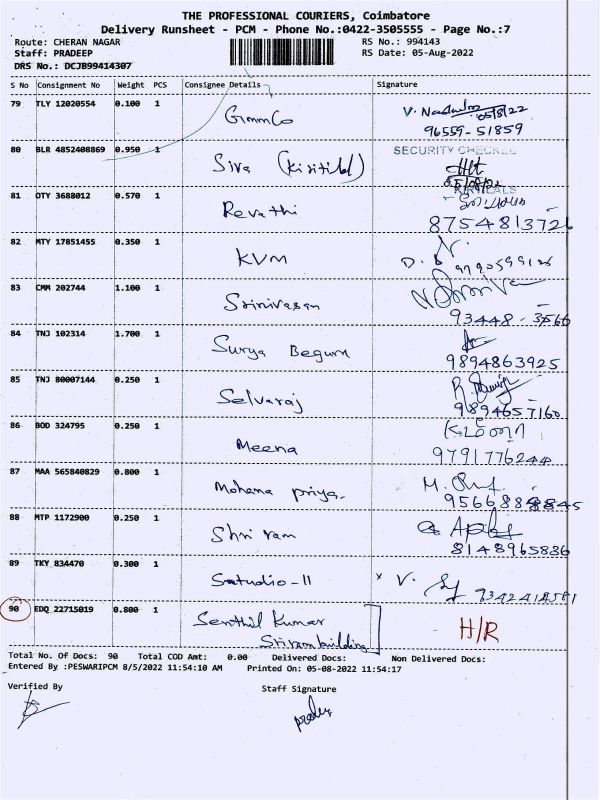 THE PROFESSIONAL COURIERS, Coimbatore
Delivery Runsheet - PCM - Phone No.:0422-3505555 - Page No.:7
Route: CHERAN NAGAR RS No.: 994143
Staff: PRADEEP RS Date: 05-Aug-2022
DRS No.: DCJB99414307
S No Consignment No Weight PCS Consignee Details Signature
79 TLY 12020554 0.100 1 GmmCo 05/8/22
96559-51859
80 BLR 4852408869 0.950 1 Siva SECURITY CHECKED
81 OTY 3688012 0.570 1 Revathi
8754813726
82 MTY 17851455 0.350 1 KVM
9790599126
83 CMM 202744 1.100 1 Srinivasan
93448-3566
84 TNJ 102314 1.700 1 Surya Begum
9894863925
85 TNJ 80007144 0.250 1 Selvaraj
9894657160
86 BOD 324795 0.250 1 Meena
9791776244
87 MAA 565840829 0.800 1 Mohana priya.
88 MTP 1172900 0.250 1 Shri ram
8148965836
89 TKY 834470 0.300 1 Satudio-11 x V.
90 EDQ 22715019 0.800 1 Senthil Kumar H/R
Sriram building
Total No. Of Docs: 90 Total COD Amt: 0.00 Delivered Docs: Non Delivered Docs:
Entered By :PESWARIPCM 8/5/2022 11:54:10 AM Printed On: 05-08-2022 11:54:17
Verified By Staff Signature